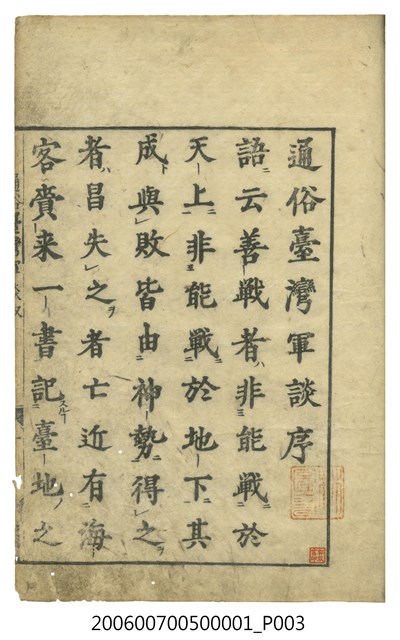 通俗臺灣軍談序
語云善戰者非能戰於
天上非能戰於地下其
成與敗皆由神勢得之
者昌失之者亡近有海
客賫来一書記臺地之
200600700500001_P003